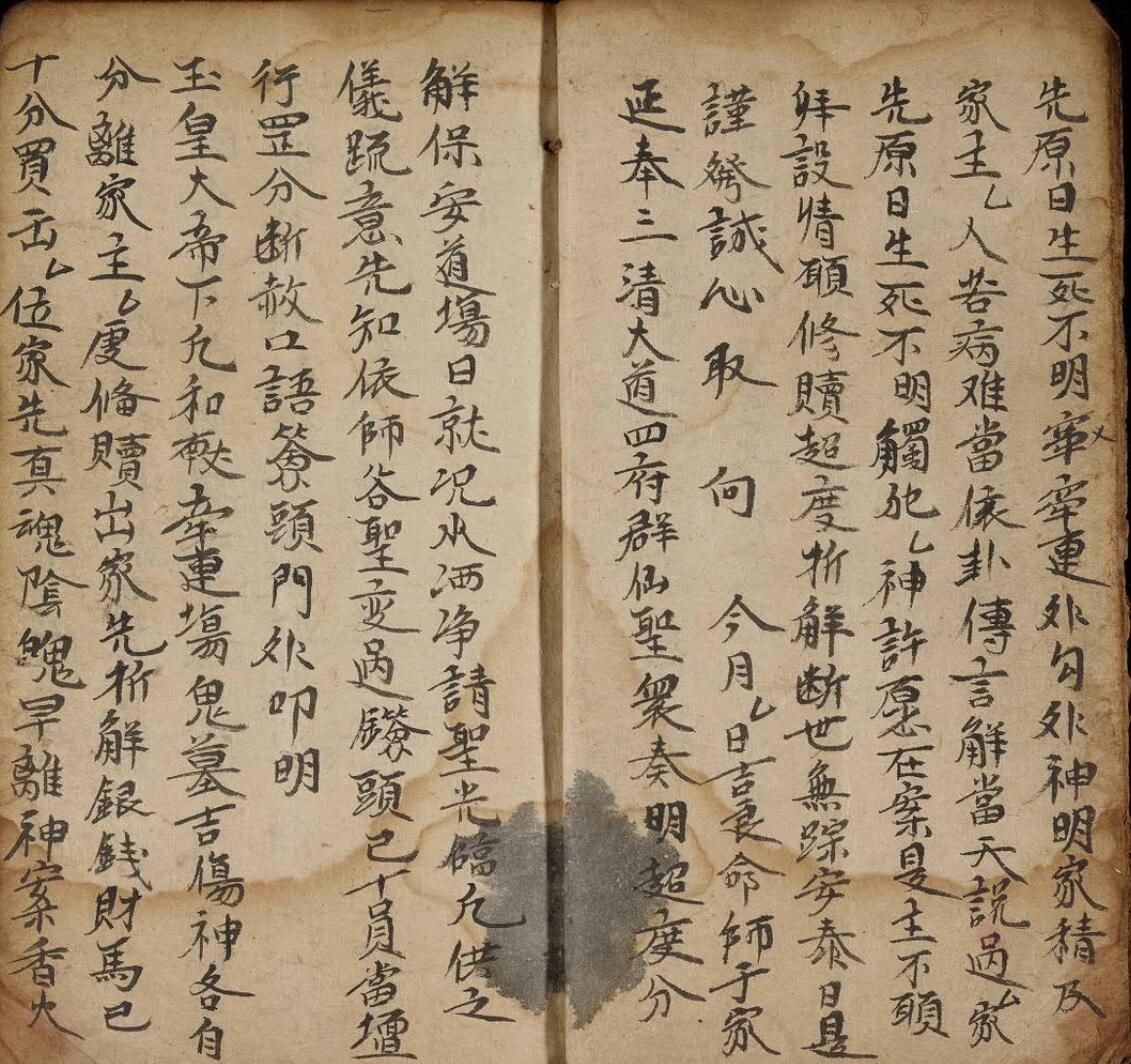 先原日生死不明牽牽連外勾外神明家精及
家主乚人若病难當依卦傳言解當天説过家
先原日生死不明觸犯乚神許愿在案是主不願
拜設情願修贖超度折解断世無踪安泰日是
謹發誠心取 向 今月乚日吉良命師于家
延奉三清大道四府群仙聖衆奏明超度分
解保安道場日就况水洒净請聖光臨凡供之
儀疏意先知依師各聖变过頭已十員當壇
行罡分断赦口語頭門外叩明
玉皇大帝下凡和牽連塲鬼墓吉傷神各自
分離家主乚俻贖出家先折解銀銭財馬已
十分買缶乚位家先真魂陰魄早離神案香火